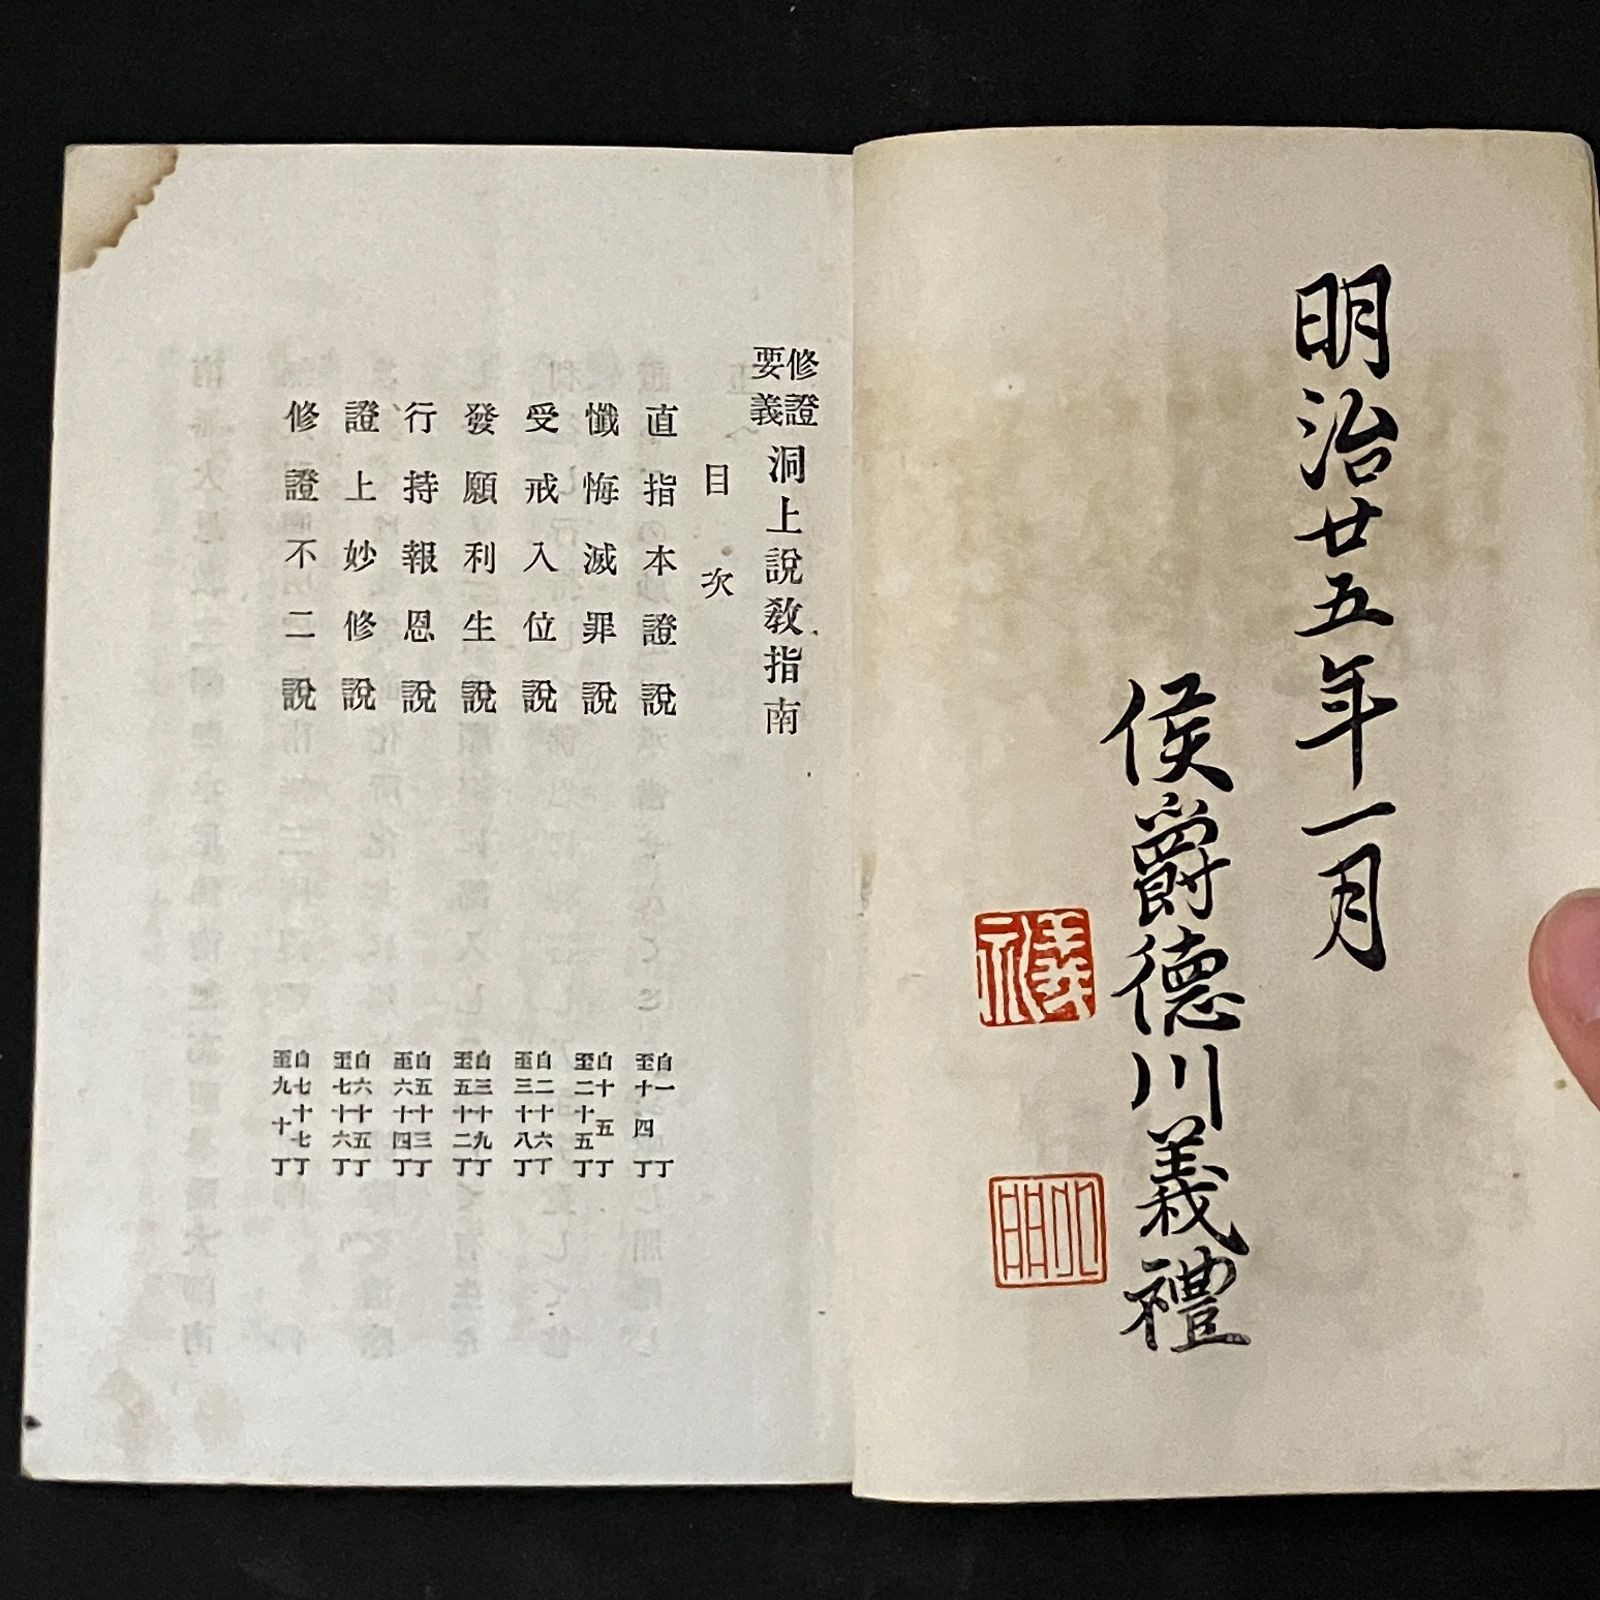 明治廿五年一月
侯爵德川義禮
義禮
修證要義 洞上說敎指南
目次
直指本證說 自一丁至十四丁
懺悔滅罪說 自十五丁至二十五丁
受戒入位說 自二十六丁至三十八丁
發願利生說 自三十九丁至五十二丁
行持報恩說 自五十三丁至六十四丁
證上妙修說 自六十五丁至七十六丁
修證不二說 自七十七丁至九十丁